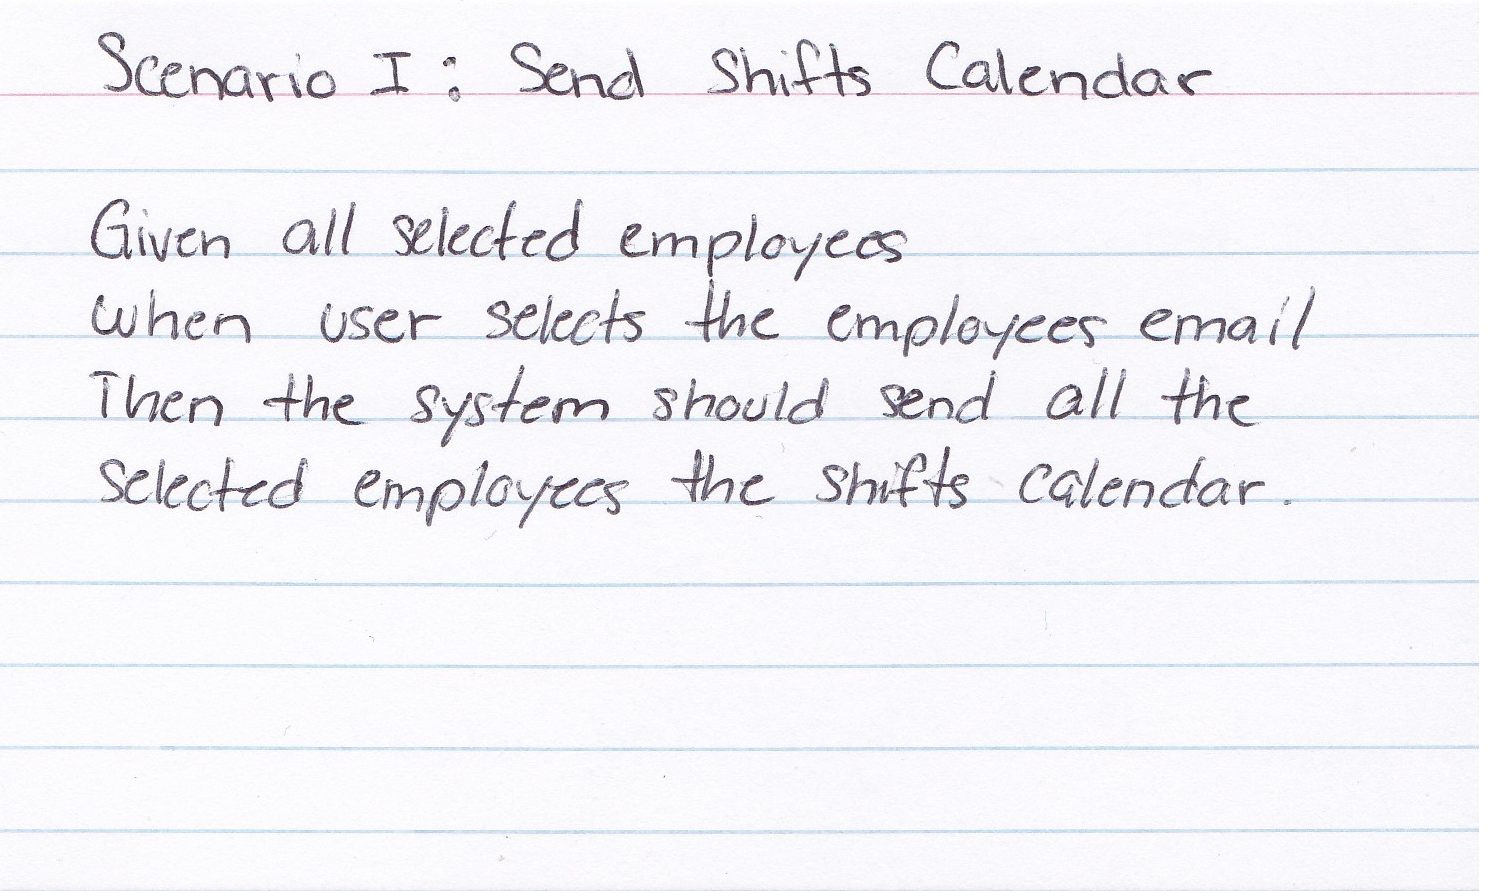 Scenario I: Send Shifts Calendar
Given all selected employees
when user selects the employees email
Then the system should send all the
selected employees the shifts calendar.